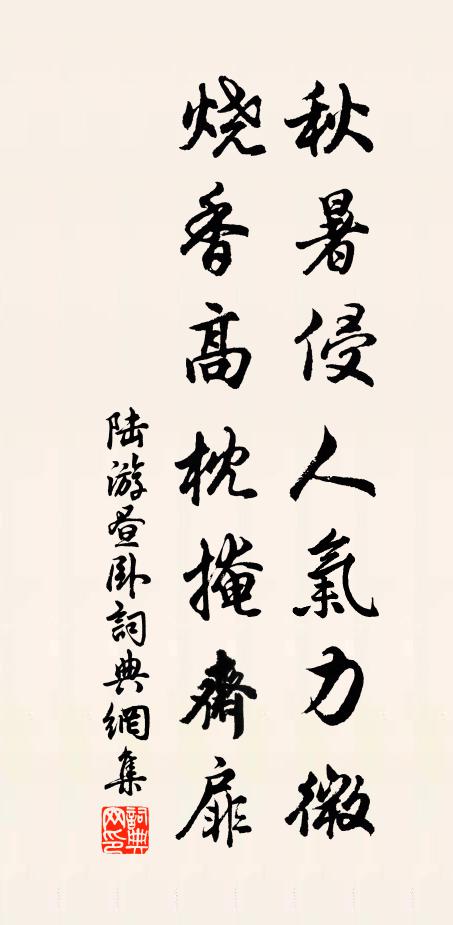 秋暑侵人氣力微
烧香高枕掩齋扉
陆游昼卧詞典網集
詞典网印